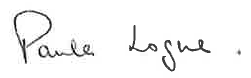 Paula Logue.